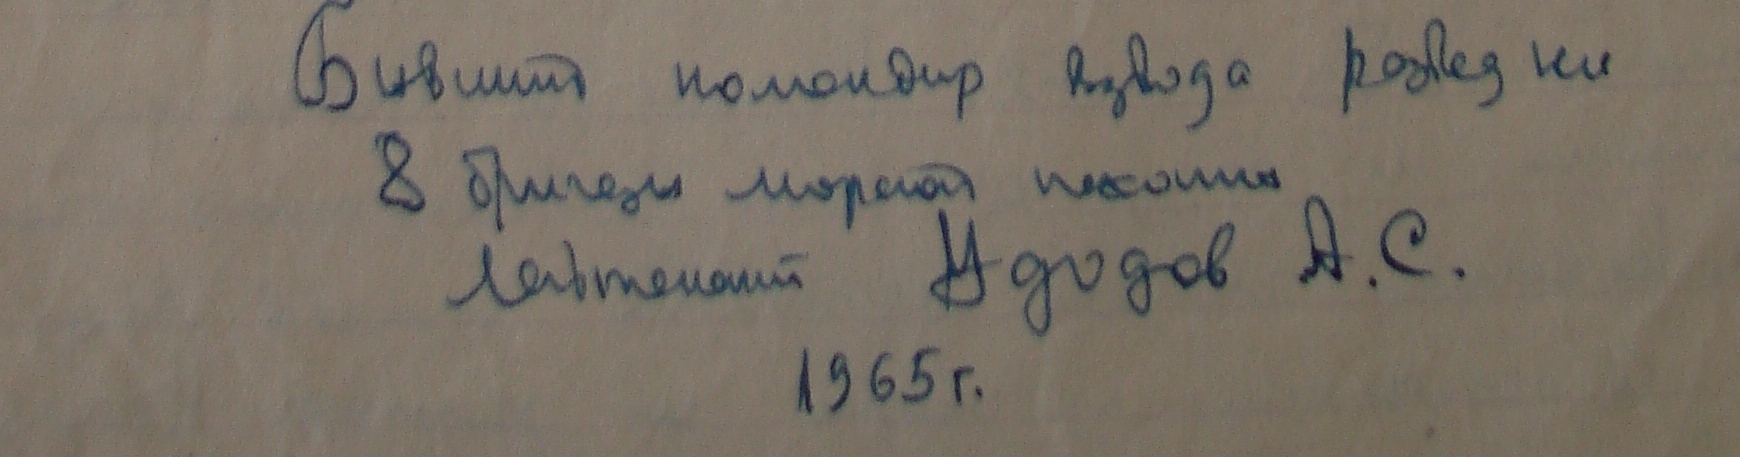 Бывший командир взвода разведки
8 бригады морской пехоты
лейтенант Удодов А.С.
1965г.